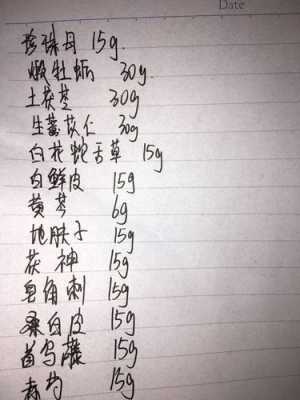 Date
珍珠母 15g.
煅牡蛎 30g.
土茯苓 30g
生薏苡仁 30g
白花蛇舌草 15g
白鲜皮 15g
黄芩 6g
地肤子 15g
茯神 15g
皂角刺 15g
桑白皮 15g
首乌藤 15g
赤芍 15g